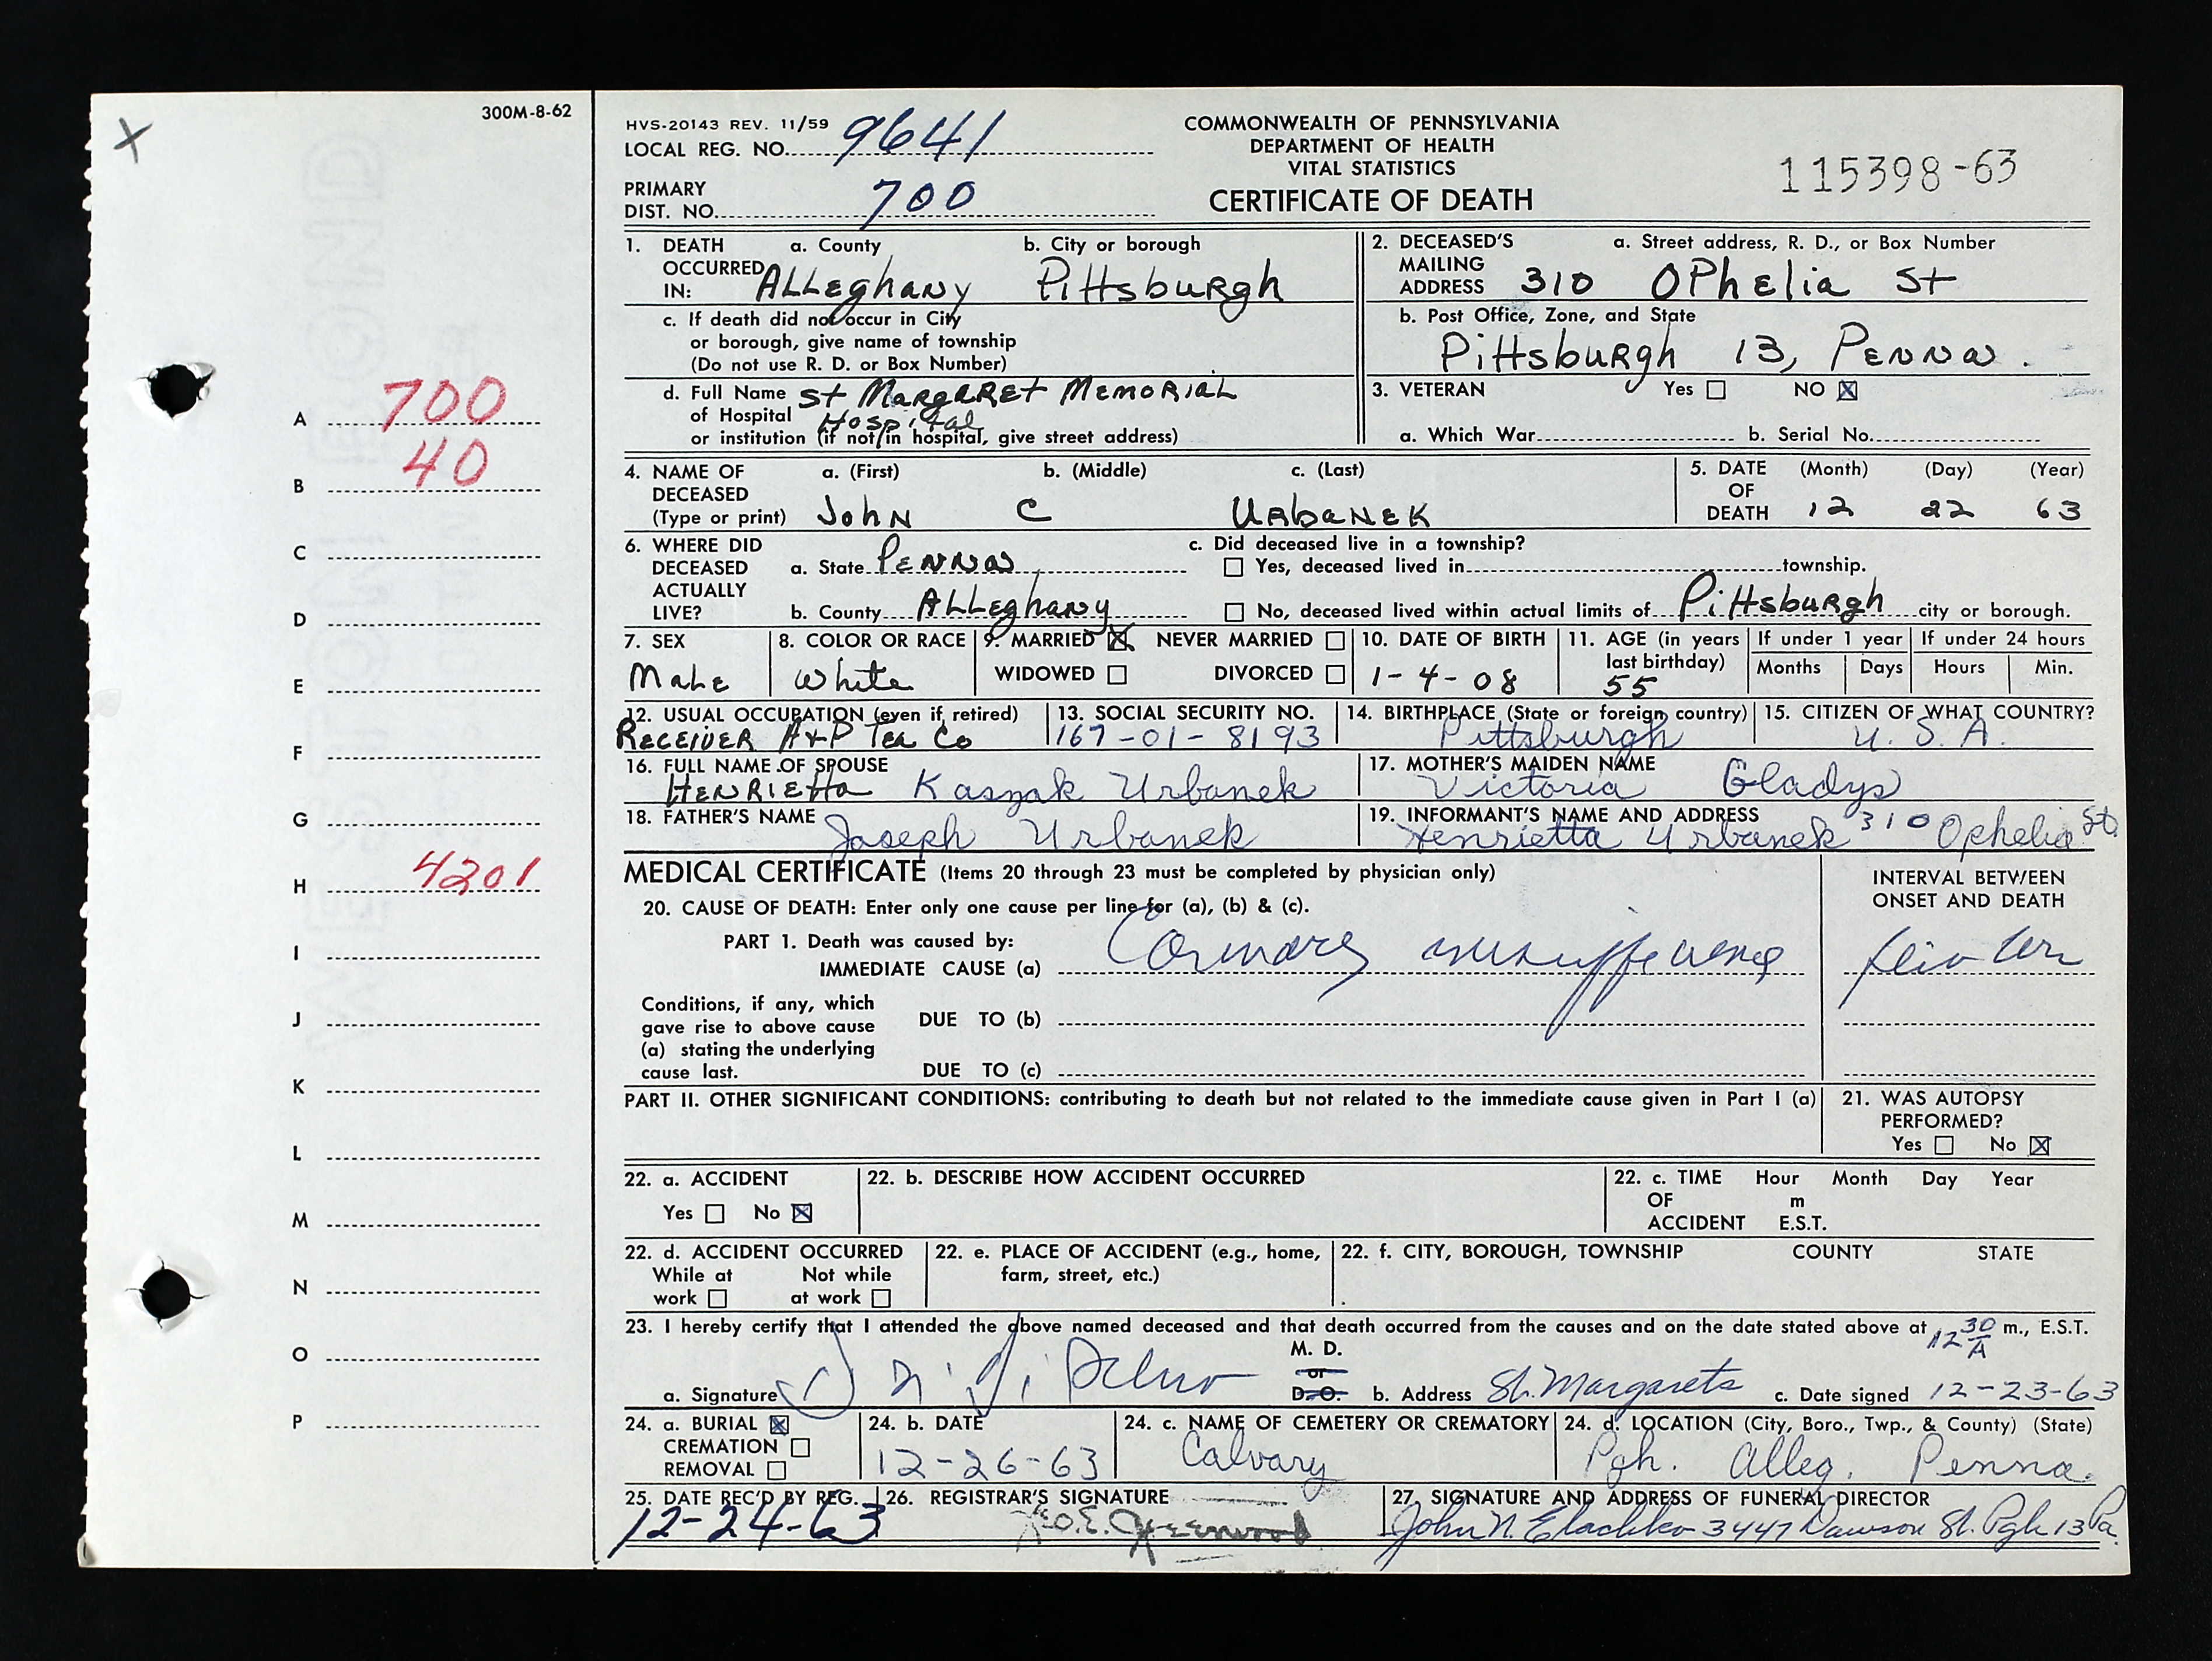 300M-8-62
X
A 700
B 40
C
D
E
F
G
H 4201
I
J
K
L
M
N
O
P
HVS-20143 REV. 11/59
LOCAL REG. NO. 9641
PRIMARY
DIST. NO. 700
COMMONWEALTH OF PENNSYLVANIA
DEPARTMENT OF HEALTH
VITAL STATISTICS
CERTIFICATE OF DEATH
115398-63
1. DEATH a. County b. City or borough
OCCURRED ALLeghaNy PittsbuRgh
IN:
c. If death did not occur in City
or borough, give name of township
(Do not use R. D. or Box Number)
d. Full Name St MaRgaREt MEMORiaL
of Hospital Hospital
or institution (if not in hospital, give street address)
2. DECEASED'S a. Street address, R. D., or Box Number
MAILING
ADDRESS 310 OPhElia St
b. Post Office, Zone, and State
PittsbuRgh 13, PENNa.
3. VETERAN Yes ☐ NO ☒
a. Which War b. Serial No.
4. NAME OF a. (First) b. (Middle) c. (Last)
DECEASED
(Type or print) JohN C URbaNEK
5. DATE (Month) (Day) (Year)
OF
DEATH 12 22 63
6. WHERE DID
DECEASED a. State PENNa
ACTUALLY
LIVE? b. County ALLeghaNy
c. Did deceased live in a township?
☐ Yes, deceased lived in township.
☐ No, deceased lived within actual limits of PittsbuRgh city or borough.
7. SEX 8. COLOR OR RACE 9. MARRIED ☒ NEVER MARRIED ☐ 10. DATE OF BIRTH 11. AGE (in years If under 1 year If under 24 hours
last birthday) Months Days Hours Min.
MaLE White WIDOWED ☐ DIVORCED ☐ 1-4-08 55
12. USUAL OCCUPATION (even if retired) 13. SOCIAL SECURITY NO. 14. BIRTHPLACE (State or foreign country) 15. CITIZEN OF WHAT COUNTRY?
RECEIVER A+P Tea Co 167-01-8193 Pittsburgh U. S. A.
16. FULL NAME OF SPOUSE 17. MOTHER'S MAIDEN NAME
HENRIEtta Kaszak Urbanek Victoria Gladys
18. FATHER'S NAME Joseph Urbanek
19. INFORMANT'S NAME AND ADDRESS
Henrietta Urbanek 310 Ophelia St.
MEDICAL CERTIFICATE (Items 20 through 23 must be completed by physician only)
INTERVAL BETWEEN
ONSET AND DEATH
20. CAUSE OF DEATH: Enter only one cause per line for (a), (b) & (c).
PART 1. Death was caused by:
IMMEDIATE CAUSE (a) Coronary insufficiency
Conditions, if any, which
gave rise to above cause DUE TO (b)
(a) stating the underlying
cause last. DUE TO (c)
PART II. OTHER SIGNIFICANT CONDITIONS: contributing to death but not related to the immediate cause given in Part I (a)
21. WAS AUTOPSY
PERFORMED?
Yes ☐ No ☒
22. a. ACCIDENT
Yes ☐ No ☒
22. b. DESCRIBE HOW ACCIDENT OCCURRED
22. c. TIME Hour Month Day Year
OF m
ACCIDENT E.S.T.
22. d. ACCIDENT OCCURRED
While at Not while
work ☐ at work ☐
22. e. PLACE OF ACCIDENT (e.g., home,
farm, street, etc.)
22. f. CITY, BOROUGH, TOWNSHIP COUNTY STATE
23. I hereby certify that I attended the above named deceased and that death occurred from the causes and on the date stated above at 12 30 A m., E.S.T.
M. D.
or
a. Signature D.O. b. Address St. Margarets c. Date signed 12-23-63
24. a. BURIAL ☒
CREMATION ☐
REMOVAL ☐
24. b. DATE
12-26-63
24. c. NAME OF CEMETERY OR CREMATORY
Calvary
24. d. LOCATION (City, Boro., Twp., & County) (State)
Pgh. Alleg. Penna.
25. DATE REC'D BY REG.
12-24-63
26. REGISTRAR'S SIGNATURE
27. SIGNATURE AND ADDRESS OF FUNERAL DIRECTOR
John N. Elachko 3447 Dawson St. Pgh 13 Pa.